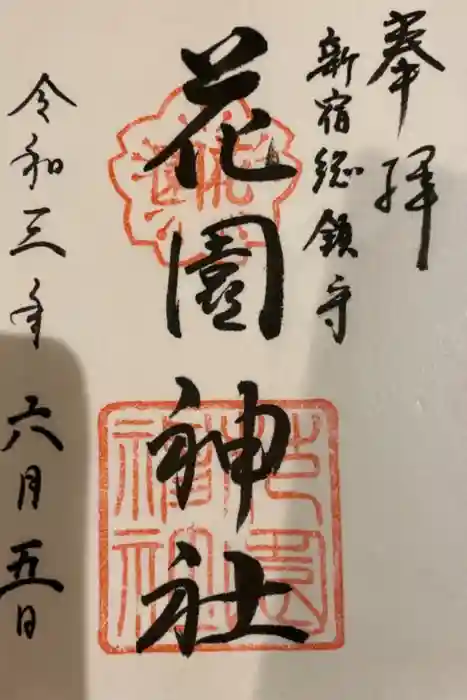 奉拝
新宿総鎮守
花園神社
花園神社
令和三年六月五日